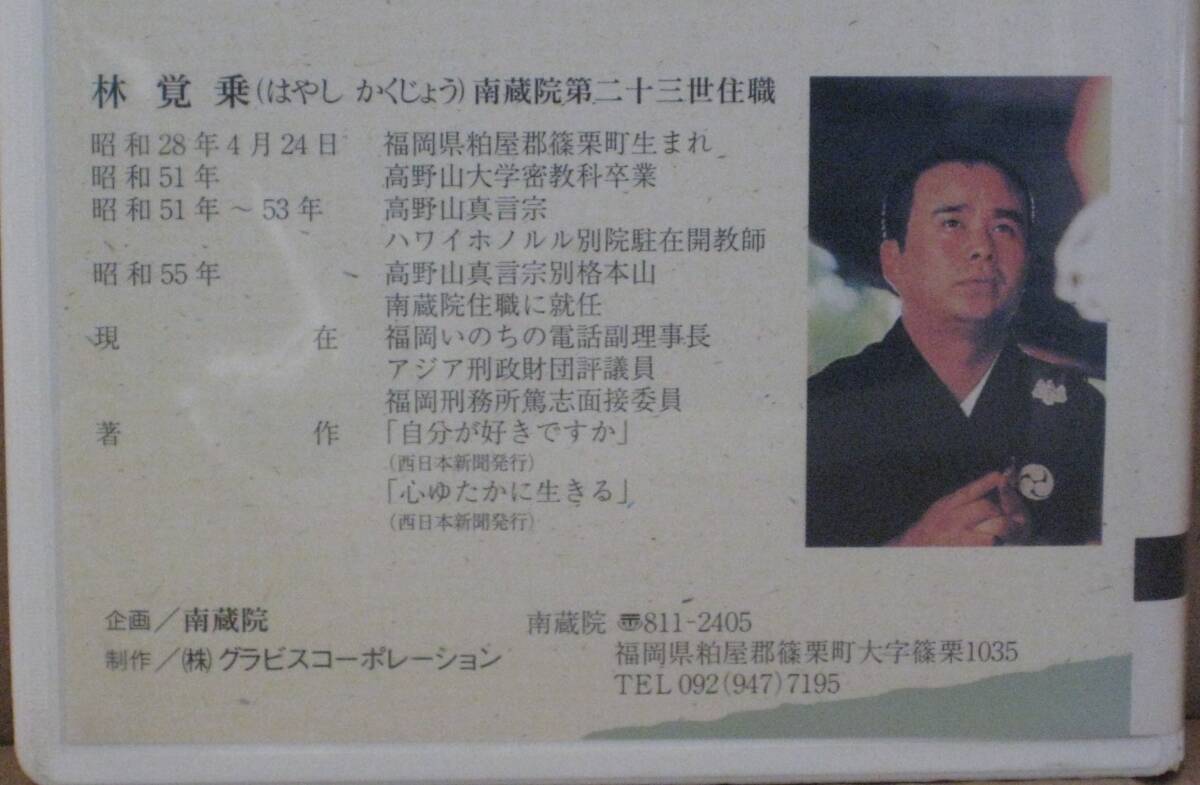 林 覚 乗(はやし かくじょう)南蔵院第二十三世住職
昭和28年4月24日 福岡県粕屋郡篠栗町生まれ
昭和51年 高野山大学密教科卒業
昭和51年～53年 高野山真言宗
ハワイホノルル別院駐在開教師
昭和55年 高野山真言宗別格本山
南蔵院住職に就任
現 在 福岡いのちの電話副理事長
アジア刑政財団評議員
福岡刑務所篤志面接委員
著 作 「自分が好きですか」
(西日本新聞発行)
「心ゆたかに生きる」
(西日本新聞発行)
企画／南蔵院
制作／㈱グラビスコーポレーション
南蔵院 〠811-2405
福岡県粕屋郡篠栗町大字篠栗1035
TEL 092(947)7195